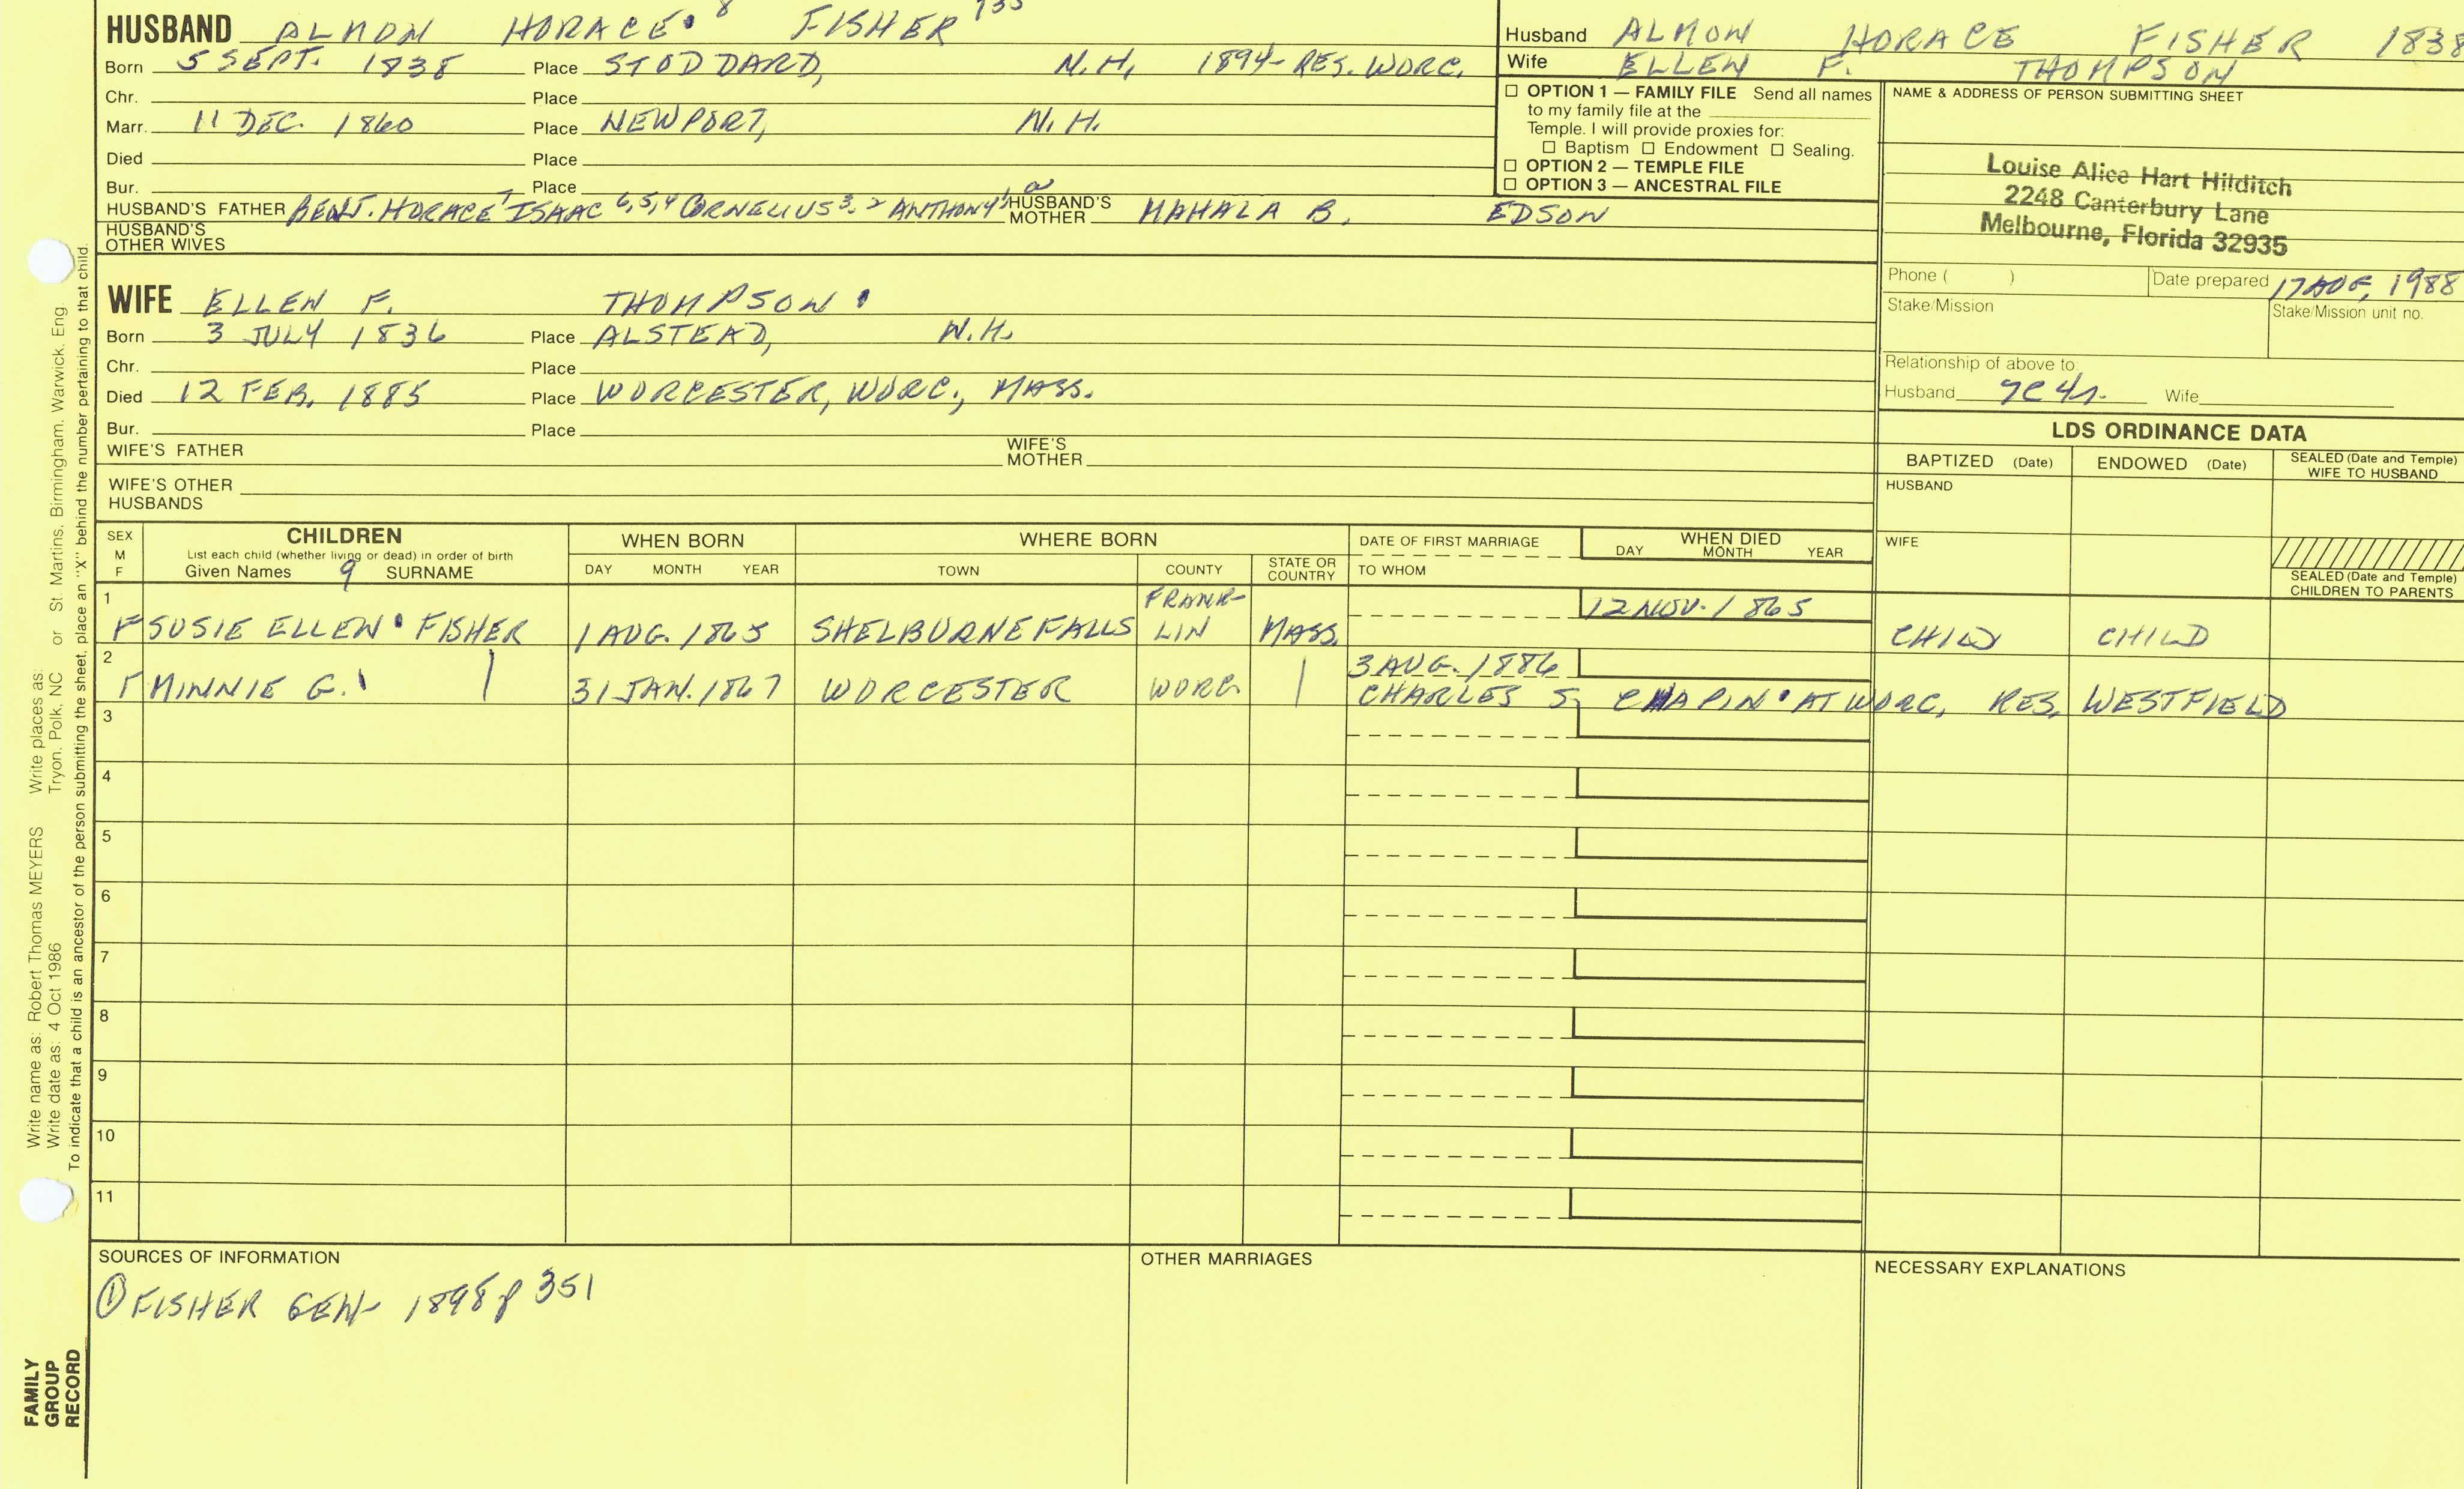 HUSBAND ALMON HORACE 8 FISHER 735
Born 5 SEPT. 1838 Place STODDARD, N.H. 1894-RES. WORC.
Chr. Place
Marr. 11 DEC. 1860 Place NEWPORT, N.H.
Died Place
Bur. Place
HUSBAND'S FATHER BENJ. HORACE 7 ISAAC 6,5,4 CORNELIUS 3,2 ANTHONY 1 HUSBAND'S MOTHER MAHALA B. EDSON
HUSBAND'S OTHER WIVES
Husband ALMON HORACE FISHER 1838
Wife ELLEN F. THOMPSON
☐ OPTION 1 — FAMILY FILE Send all names
to my family file at the
Temple. I will provide proxies for:
☐ Baptism ☐ Endowment ☐ Sealing.
☐ OPTION 2 — TEMPLE FILE
☐ OPTION 3 — ANCESTRAL FILE
NAME & ADDRESS OF PERSON SUBMITTING SHEET
Louise Alice Hart Hilditch
2248 Canterbury Lane
Melbourne, Florida 32935
Phone ( ) Date prepared 17 AUG, 1988
Stake/Mission Stake/Mission unit no.
Relationship of above to:
Husband Wife
WIFE ELLEN F. THOMPSON
Born 3 JULY 1836 Place ALSTEAD, N.H.
Chr. Place
Died 12 FEB. 1885 Place WORCESTER, WORC., MASS.
Bur. Place
WIFE'S FATHER WIFE'S MOTHER
WIFE'S OTHER
HUSBANDS
LDS ORDINANCE DATA
BAPTIZED (Date) ENDOWED (Date) SEALED (Date and Temple) WIFE TO HUSBAND
HUSBAND
WIFE
SEALED (Date and Temple)
CHILDREN TO PARENTS
SEX M F CHILDREN WHEN BORN WHERE BORN DATE OF FIRST MARRIAGE WHEN DIED
List each child (whether living or dead) in order of birth DAY MONTH YEAR
Given Names 9 SURNAME DAY MONTH YEAR TOWN COUNTY STATE OR COUNTRY TO WHOM
1 F SUSIE ELLEN FISHER 1 AUG. 1865 SHELBURNE FALLS FRANK-LIN MASS. 12 NOV. 1865 CHILD CHILD
2 F MINNIE G. 31 JAN. 1867 WORCESTER WORC. 3 AUG. 1886
CHARLES S. CHAPIN AT WORC, RES. WESTFIELD
3
4
5
6
7
8
9
10
11
SOURCES OF INFORMATION
① FISHER GEN- 1898 p 351
OTHER MARRIAGES
NECESSARY EXPLANATIONS
Write name as: Robert Thomas MEYERS Write places as: St. Martins, Birmingham, Warwick, Eng
Write date as: 4 Oct 1986 Tryon, Polk, NC or
To indicate that a child is an ancestor of the person submitting the sheet, place an "X" behind the number pertaining to that child.
FAMILY
GROUP
RECORD